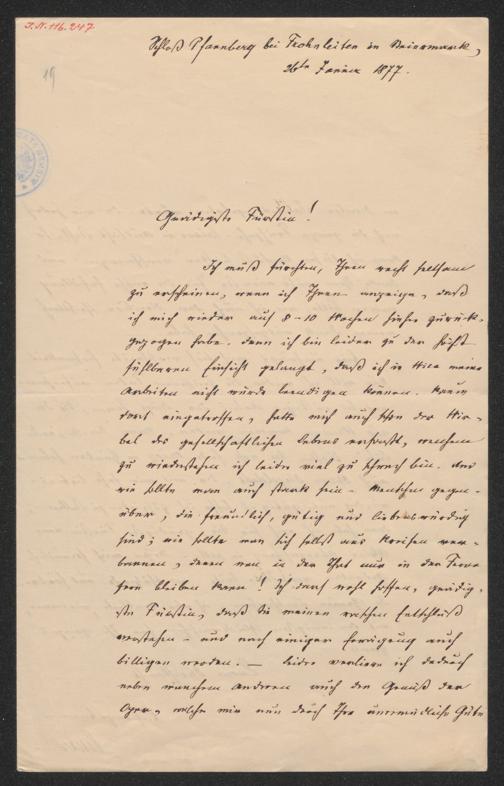 I.N. 116.247
19
Schloß Pfannberg bei Frohnleiten in Steiermark,
26te Jänner 1877.
Gnädigste Fürstin!
Ich muß fürchten, Ihnen recht seltsam
zu erscheinen, wenn ich Ihnen anzeige, daß
ich mich wieder auf 8-10 Wochen hieher zurück-
gezogen habe. Denn ich bin leider zu der höchst
fühlbaren Einsicht gelangt, daß ich in Wien meine
Arbeiten nicht würde beendigen können. Kaum
dort eingetroffen, hatte mich auch schon der Wir-
bel des gesellschaftlichen Lebens erfasst, welchem
zu wiederstehen ich leider viel zu schwach bin. Und
wie sollte man auch stark sein – Menschen gegen-
über, die freundlich, gütig und liebenswürdig
sind; wie sollte man sich selbst aus Kreisen ver-
bannen, denen man in der That nur in der Ferne
fern bleiben kann! Ich darf wohl hoffen, gnädig-
ste Fürstin, daß Sie meinen raschen Entschluß
verstehen – und nach einiger Erwägung auch
billigen werden. — Leider verliere ich dadurch
neben manchem Anderen auch den Genuß der
Oper, welche mir nun durch Ihre unermüdliche Güte